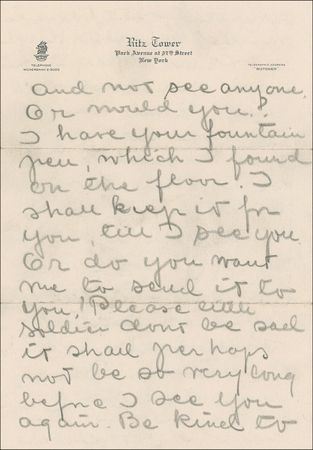 Ritz Tower
Park Avenue at 57th Street
New York
TELEPHONE
WICKERSHAM 2-5000
TELEGRAPHIC ADDRESS
and not see anyone.
Or would you?
I have your fountain
pen, which I found
on the floor. I
shall keep it for
you, till I see you
Or do you want
me to send it to
you! Please little
soldier dont be sad
it shall perhaps
not be so very long
before I see you
again. Be kind to